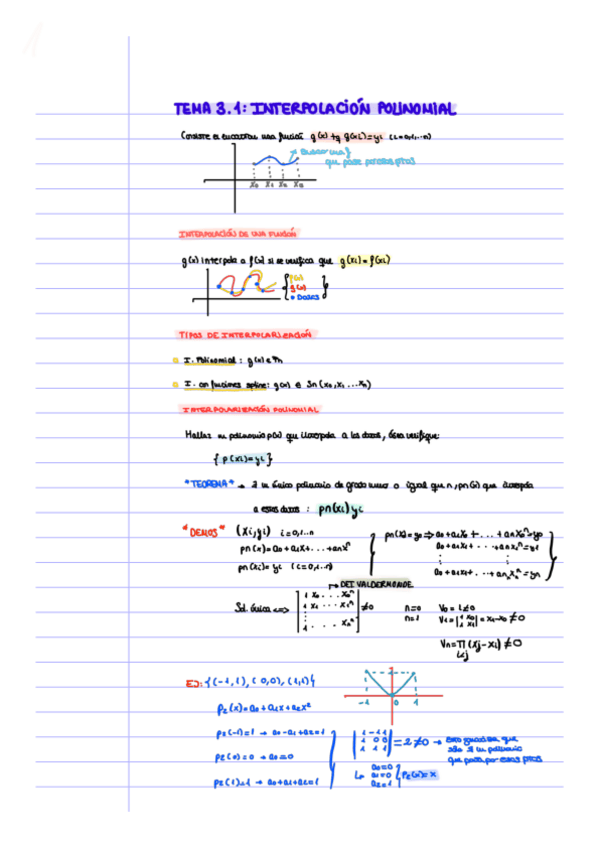 TEMA 3.1: INTERPOLACIÓN POLINOMIAL
Consiste en encontrar una función g(x) tq g(xi)=yi (i=0,1,...n)
Buscar una f
que pase por estos ptos
x0 x1 x2 x3
INTERPOLACIÓN DE UNA FUNCIÓN
g(x) interpola a f(x) si se verifica que g(xi)=f(xi)
f(x)
g(x)
• DATOS
TIPOS DE INTERPOLARIZACIÓN
I. Polinomial: g(x) ∈ Pn
I. con funciones spline: g(x) ∈ Sn(x0,x1...xn)
INTERPOLARIZACIÓN POLINOMIAL
Hallar un polinomio p(x) que interpola a los datos, es verifique:
{p(xi)=yi}
"TEOREMA" → ∃ un único polinomio de grado menor o igual que n, pn(x) que interpola
a estos datos: pn(xi) yi
"DEMOS" (xi,yi) i=0,1..n
pn(x)=a0+a1x+...+anx^n
pn(xi)=yi (i=0,1...n)
pn(x0)=y0 ⇒ a0+a1x0+...+anx0^n=y0
a0+a1x1+...+anx1^n=y1
a0+a1xn+...+anxn^n=yn
→ DET VALDERMONDE
Sol. única ⟺ | 1 x0 ... x0^n | ≠0
1 x1 ... x1^n
1 ... xn^n
n=0 V0=1≠0
n=1 V1=|1 x0 1 x1|=x1-x0≠0
Vn=∏(xj-xi)≠0
i<j
EJ: {(-1,1),(0,0),(1,1)}
-1 0 1
p2(x)=a0+a1x+a2x²
p2(-1)=1 → a0-a1+a2=1
p2(0)=0 → a0=0
p2(1)=1 → a0+a1+a2=1
| 1 -1 1 |
| 1 0 0 | =2≠0 → esto garantiza que
| 1 1 1 |
sólo ∃ un polinomio
que pasa por estos ptos
a0=0
a1=0
a2=1
P2(x)=x